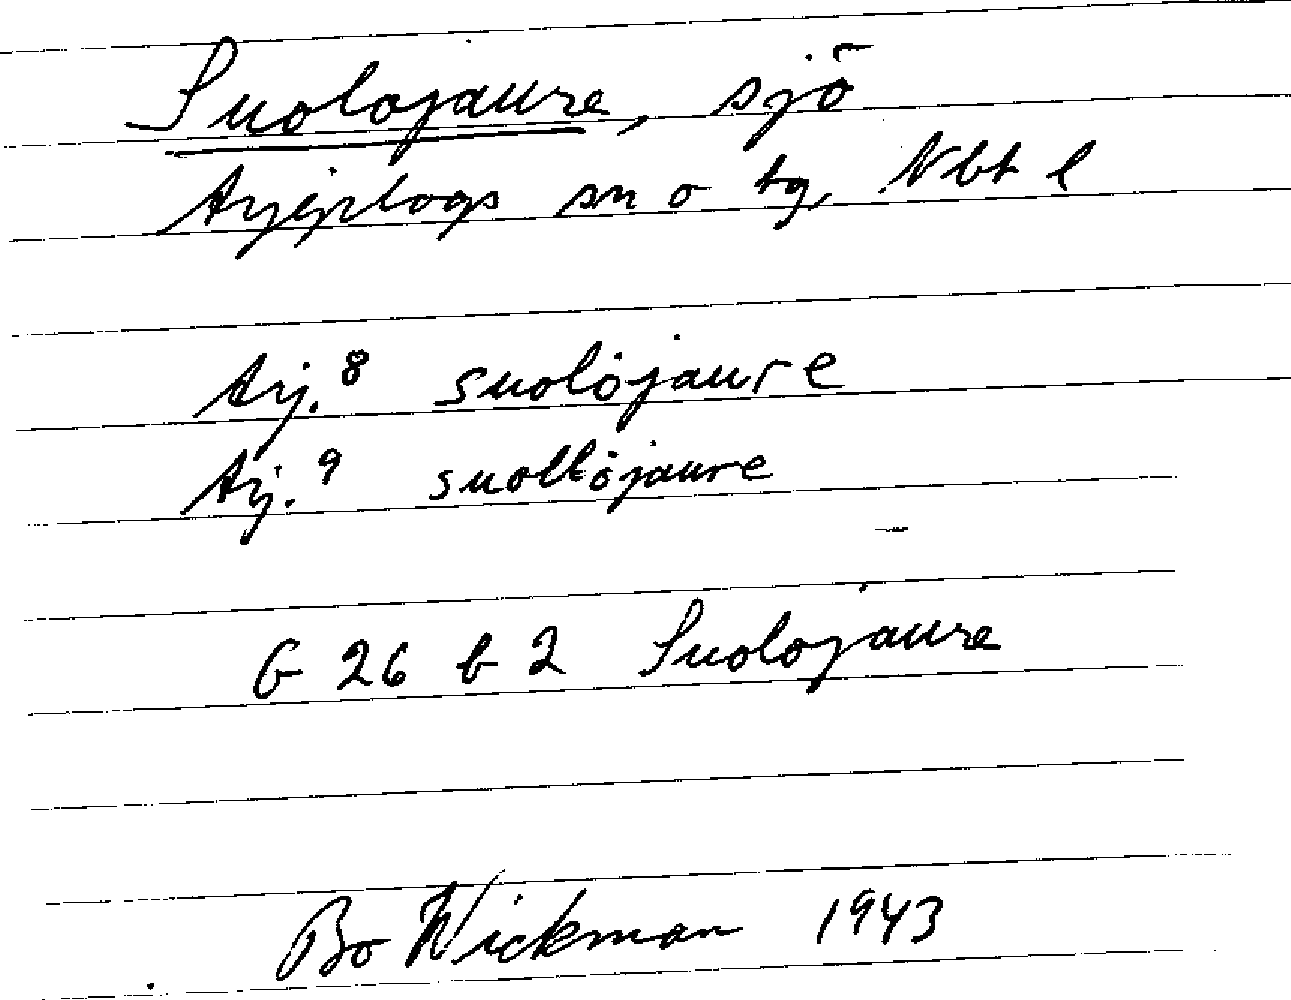 Suolojaure, sjö
Arjeplogs sn o tg, Nbt l
Arj.⁸ suolȯjaure
Arj.⁹ suollȯjaure
G 26 b 2 Suolojaure
Bo Wickman 1943